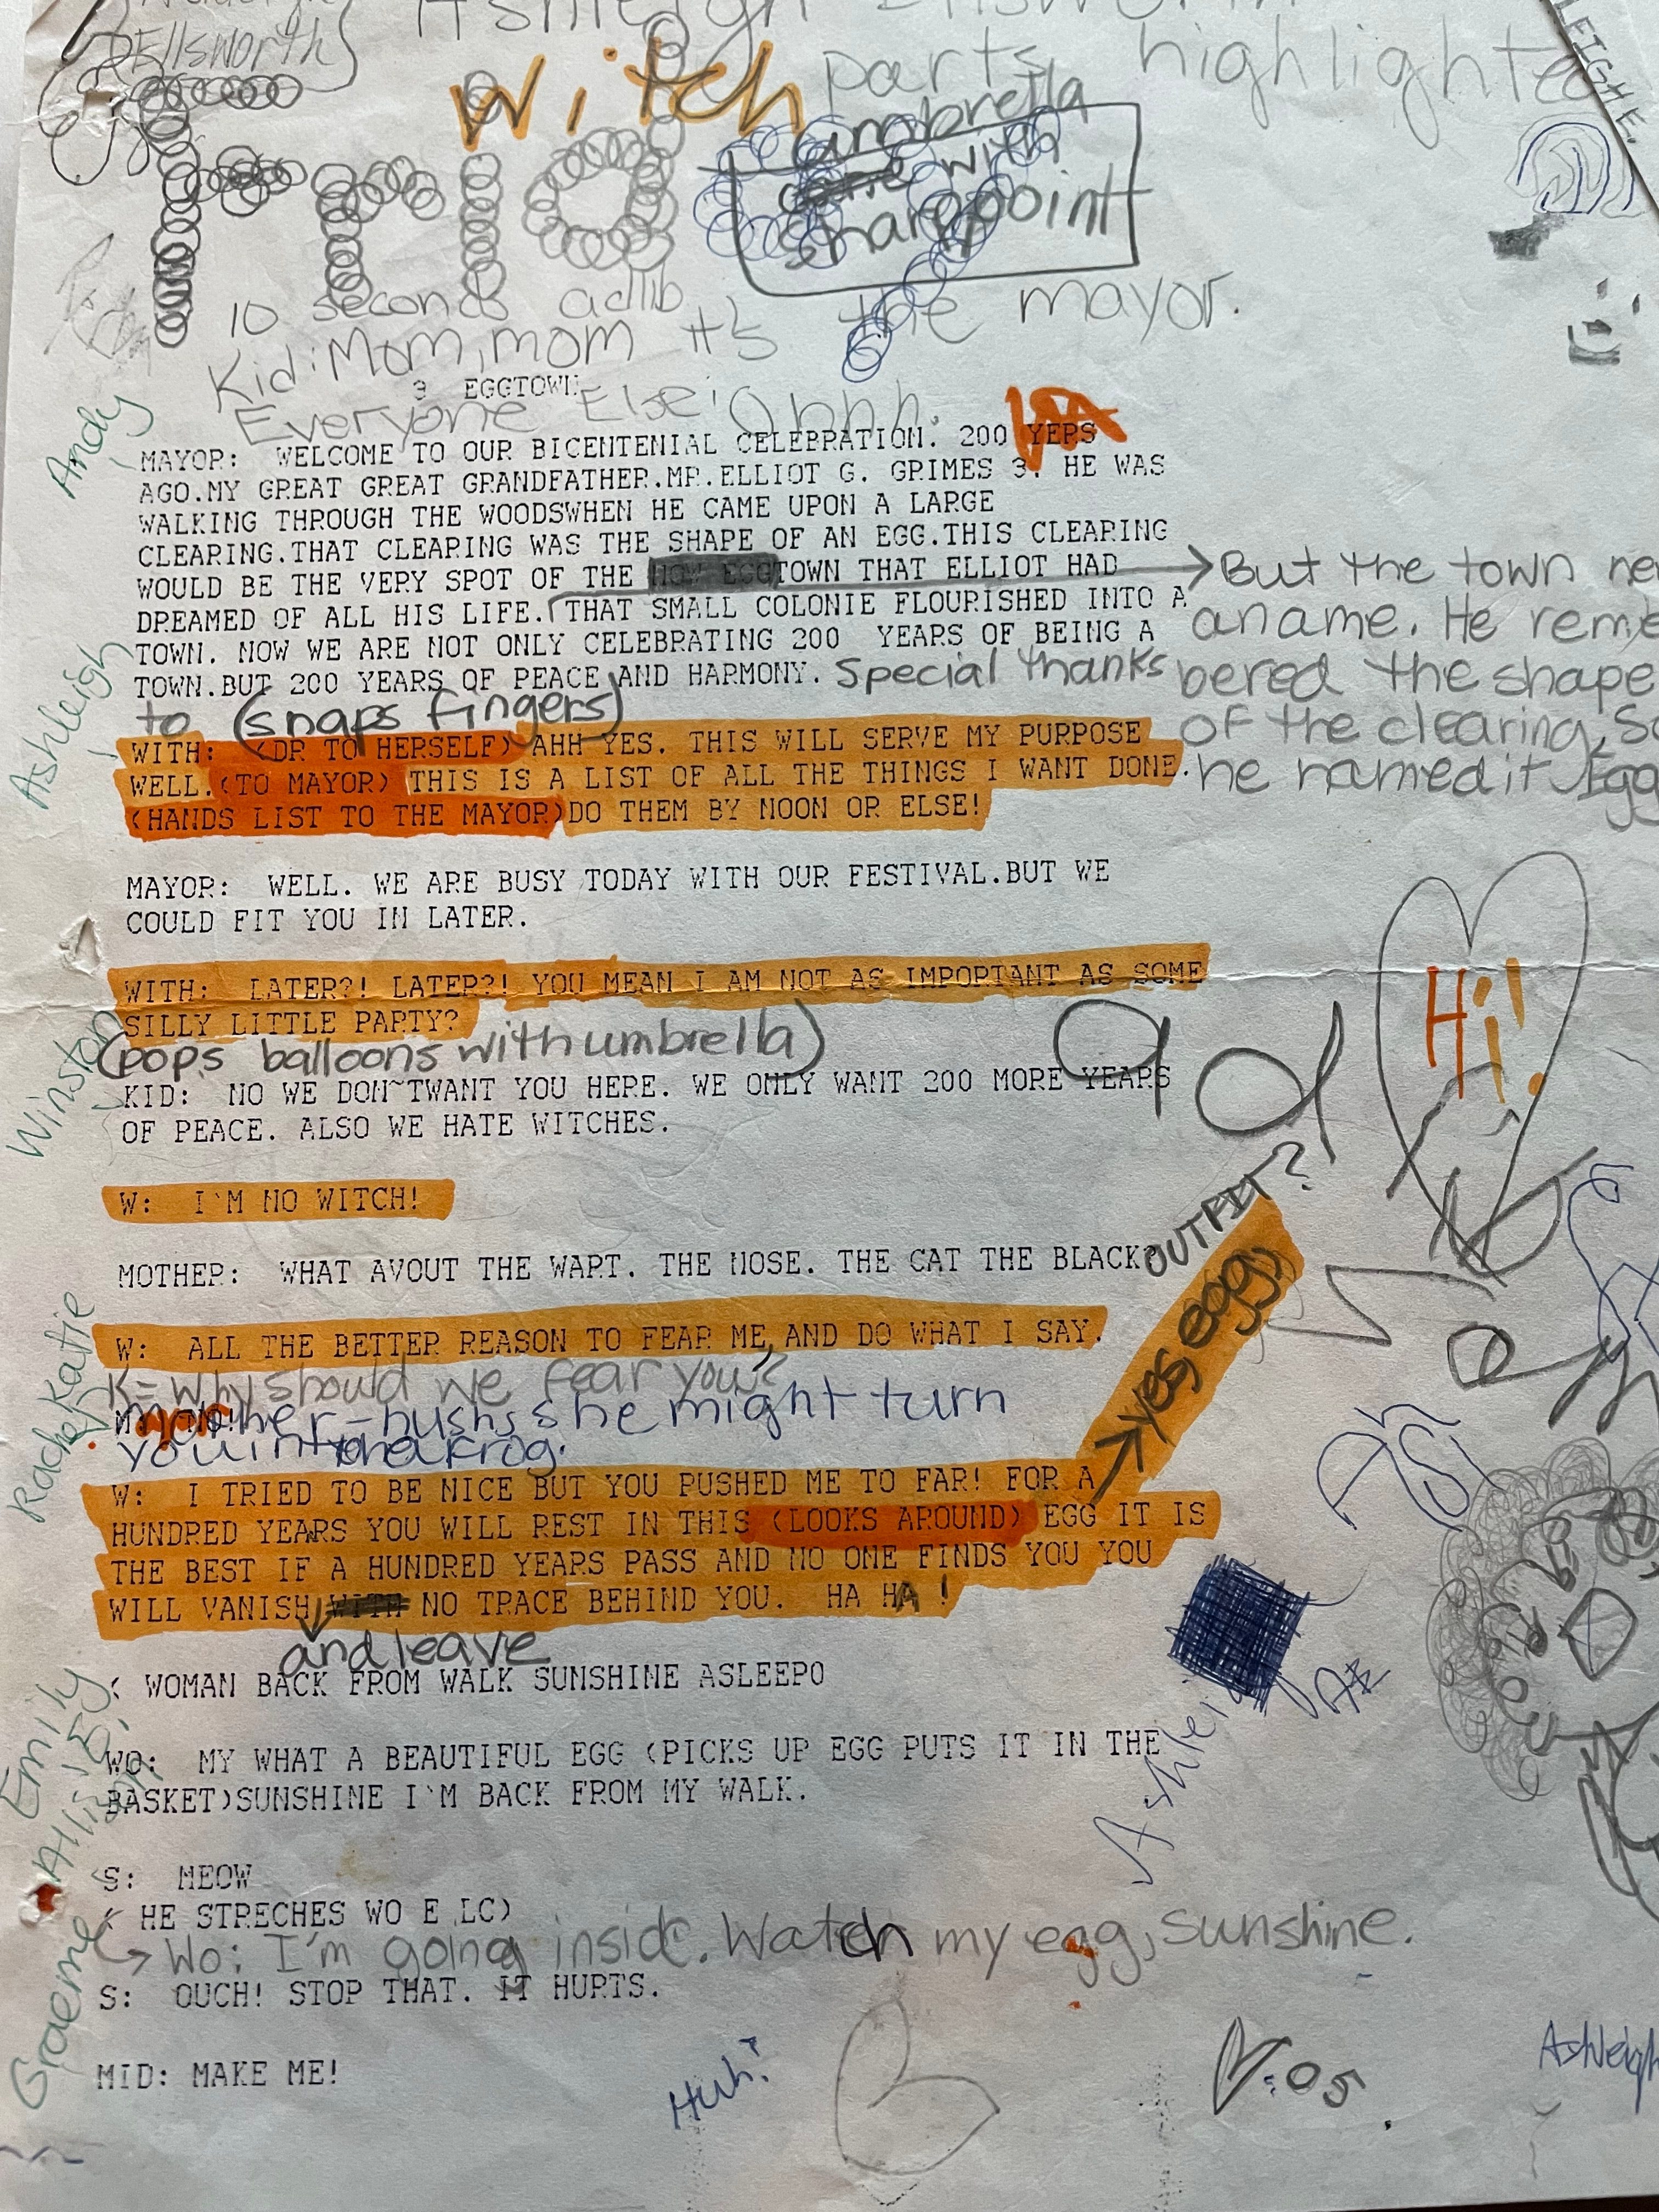 Ellsworth
witch parts highlighted
umbrella
with
sharp point
10 seconds adlib
Kid: Mom, mom it's the mayor.
3 EGGTOWN
Everyone Else: Ohhh.
Andy
MAYOR: WELCOME TO OUR BICENTENIAL CELEBRATION. 200 YERS
AGO.MY GREAT GREAT GRANDFATHER.MR.ELLIOT G. GRIMES 3. HE WAS
WALKING THROUGH THE WOODSWHEN HE CAME UPON A LARGE
CLEARING.THAT CLEARING WAS THE SHAPE OF AN EGG.THIS CLEARING
WOULD BE THE VERY SPOT OF THE TOWN THAT ELLIOT HAD
DREAMED OF ALL HIS LIFE. THAT SMALL COLONIE FLOURISHED INTO A
TOWN. NOW WE ARE NOT ONLY CELEBRATING 200 YEARS OF BEING A
TOWN.BUT 200 YEARS OF PEACE AND HARMONY. Special thanks
to (snaps fingers)
But the town ne
a name. He remem
bered the shape
of the clearing, So
he named it Egg
Ashleigh
WITH: (DR TO HERSELF) AHH YES. THIS WILL SERVE MY PURPOSE
WELL.(TO MAYOR) THIS IS A LIST OF ALL THE THINGS I WANT DONE.
(HANDS LIST TO THE MAYOR)DO THEM BY NOON OR ELSE!
MAYOR: WELL. WE ARE BUSY TODAY WITH OUR FESTIVAL.BUT WE
COULD FIT YOU IN LATER.
WITH: LATER?! LATER?! YOU MEAN I AM NOT AS IMPORTANT AS SOME
SILLY LITTLE PARTY?
(pops balloons with umbrella)
Hi!
Winston
KID: NO WE DON~TWANT YOU HERE. WE ONLY WANT 200 MORE YEARS
OF PEACE. ALSO WE HATE WITCHES.
W: I`M NO WITCH!
MOTHER: WHAT AVOUT THE WART. THE NOSE. THE CAT THE BLACK OUTFIT?
W: ALL THE BETTER REASON TO FEAR ME, AND DO WHAT I SAY.
K= Why should we fear you?
Mother-hush, she might turn
you into a frog.
Katie
Rachel
W: I TRIED TO BE NICE BUT YOU PUSHED ME TO FAR! FOR A
HUNDRED YEARS YOU WILL REST IN THIS (LOOKS AROUND) EGG IT IS
yes, egg
THE BEST IF A HUNDRED YEARS PASS AND NO ONE FINDS YOU YOU
WILL VANISH WITH NO TRACE BEHIND YOU. HA HA !
and leave
( WOMAN BACK FROM WALK SUNSHINE ASLEEPO
Emily
WO: MY WHAT A BEAUTIFUL EGG (PICKS UP EGG PUTS IT IN THE
BASKET)SUNSHINE I`M BACK FROM MY WALK.
Allison
Ashleigh
S: MEOW
( HE STRECHES WO E LC)
Wo: I'm going inside. Watch my egg, Sunshine.
S: OUCH! STOP THAT. IT HURTS.
Graeme
MID: MAKE ME!
Huh?
Ashleigh